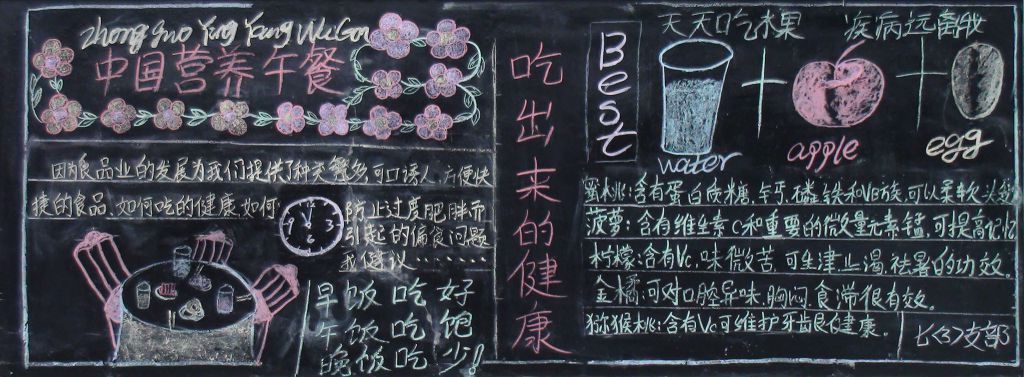 zhong guo Ying Yang Wu Can
中国营养午餐
因为食品业的发展为我们提供了种类繁多可口诱人、方便快
捷的食品、如何吃的健康、如何
防止过度肥胖而
引起的偏食问题
我建议………
9 3
早饭吃好
午饭吃饱
晚饭吃少!!
吃出来的健康
Best
天天吃水果 疾病远离我
water
apple
egg
蜜桃:含有蛋白质糖,钙,磷,铁和VB族,可以柔软头
菠萝:含有维生素C和重要的微量元素锰,可提高记忆
柠檬:含有Vc,味微苦,可生津止渴,祛暑的功效。
金橘:可对口腔异味,胸闷,食滞很有效。
猕猴桃:含有Vc可维护牙龈健康。
七(3)支部